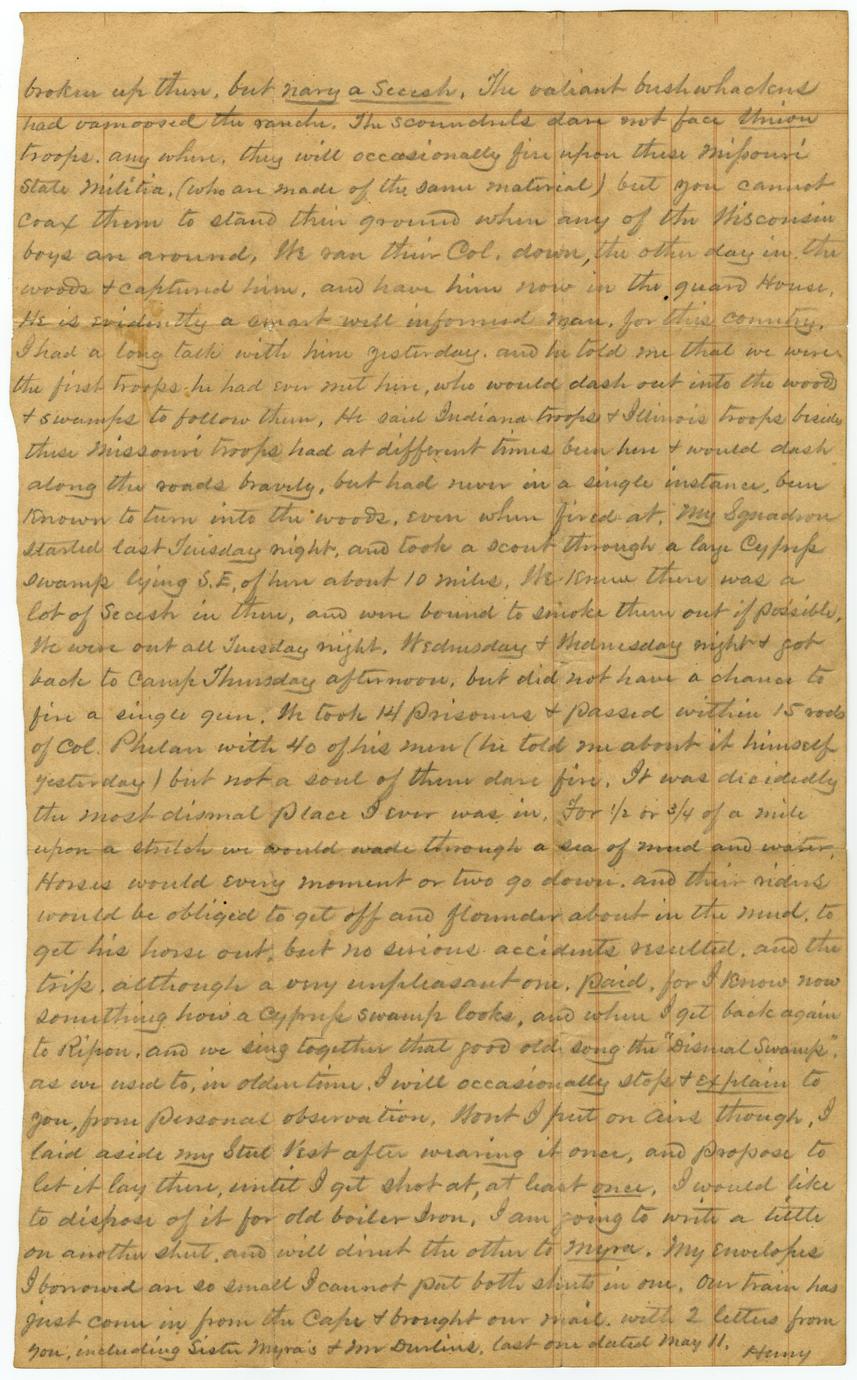 broken up then, but nary a Secesh. The valiant bushwhackers
had vamoosed the ranche. The scoundrels dare not face Union
troops. any where. they will occasionally fire upon these Missouri
State Militia. (who are made of the same material) but you cannot
coax them to stand their ground when any of the Wisconsin
boys are around. We ran their Col. down, the other day in the
woods & captured him, and have him now in the guard House.
He is evidently a smart well informed man. for this country.
I had a long talk with him yesterday. and he told me that we were
the first troops he had ever met here, who would dash out into the woods
& swamps to follow them. He said Indiana troops & Illinois troops beside
these Missouri troops had at different times been here & would dash
along the roads bravely, but had never in a single instance, been
Known to turn into the woods, even when fired at. My Squadron
started last Tuesday night, and took a scout through a large Cypress
Swamp lying S.E. of here about 10 miles. We Knew there was a
lot of Secesh in there, and were bound to smoke them out if possible,
We were out all Tuesday night. Wednesday & Wednesday night & got
back to Camp Thursday afternoon, but did not have a chance to
fire a single gun. We took 14 prisoners & passed within 15 rods
of Col. Phelan with 40 of his men (he told me about it himself
yesterday) but not a soul of them dare fire. It was dicidedly
the most dismal place I ever was in. For 1/2 or 3/4 of a mile
upon a stretch we would wade through a sea of mud and water.
Horses would every moment or two go down. and their riders
would be obliged to get off and flounder about in the mud, to
get his horse out, but no serious accidents resulted. and the
trip, although a very unpleasant one. paid. for I know now
something how a Cypress swamp looks, and when I get back again
to Ripon, and we sing together that good old song the "Dismal Swamp".
as we used to, in olden time. I will occasionally stop & explain to
you, from personal observation. Wont I put on airs though, I
laid aside my Steel Vest after wearing it once, and propose to
let it lay there, until I get shot at, at least once. I would like
to dispose of it for old boiler Iron. I am going to write a little
on another sheet, and will direct the other to Myra. My Envelopes
I borrowed are so small I cannot put both sheets in one. Our train has
just come in from the Cape & brought our mail. with 2 letters from
you, including Sister Myra's & Mr Durlins. last one dated May 11. Henry